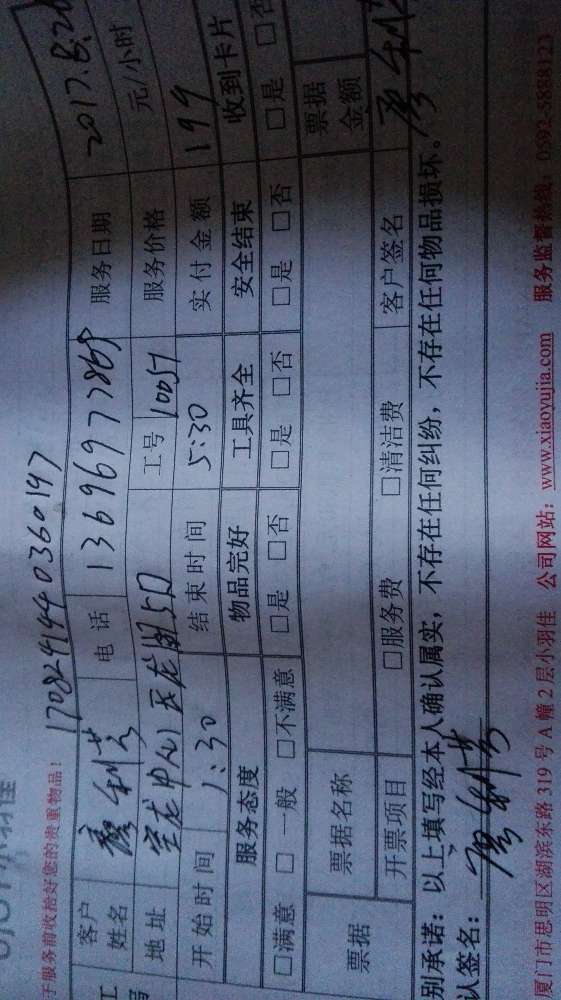 于服务前收拾好您的贵重物品!
1708241440360147
客户姓名 廖利芳 电话 13696977869 服务日期 2017.8.26
地址 宝龙中心 工号 10057 服务价格 元/小时
开始时间 1:30 结束时间 5:30 实付金额 199
服务态度 物品完好 工具齐全 安全结束 收到卡片
□满意 □一般 □不满意 □是 □否 □是 □否 □是 □否 □是 □否
票据 票据名称 票据金额
开票项目 □服务费 □清洁费 客户签名 廖利
别承诺:以上填写经本人确认属实,不存在任何纠纷,不存在任何物品损坏。
认签名:廖利芳
厦门市思明区湖滨东路 319 号 A 幢 2 层小羽佳 公司网站:www.xiaoyujia.com 服务监督热线:0592-5888123